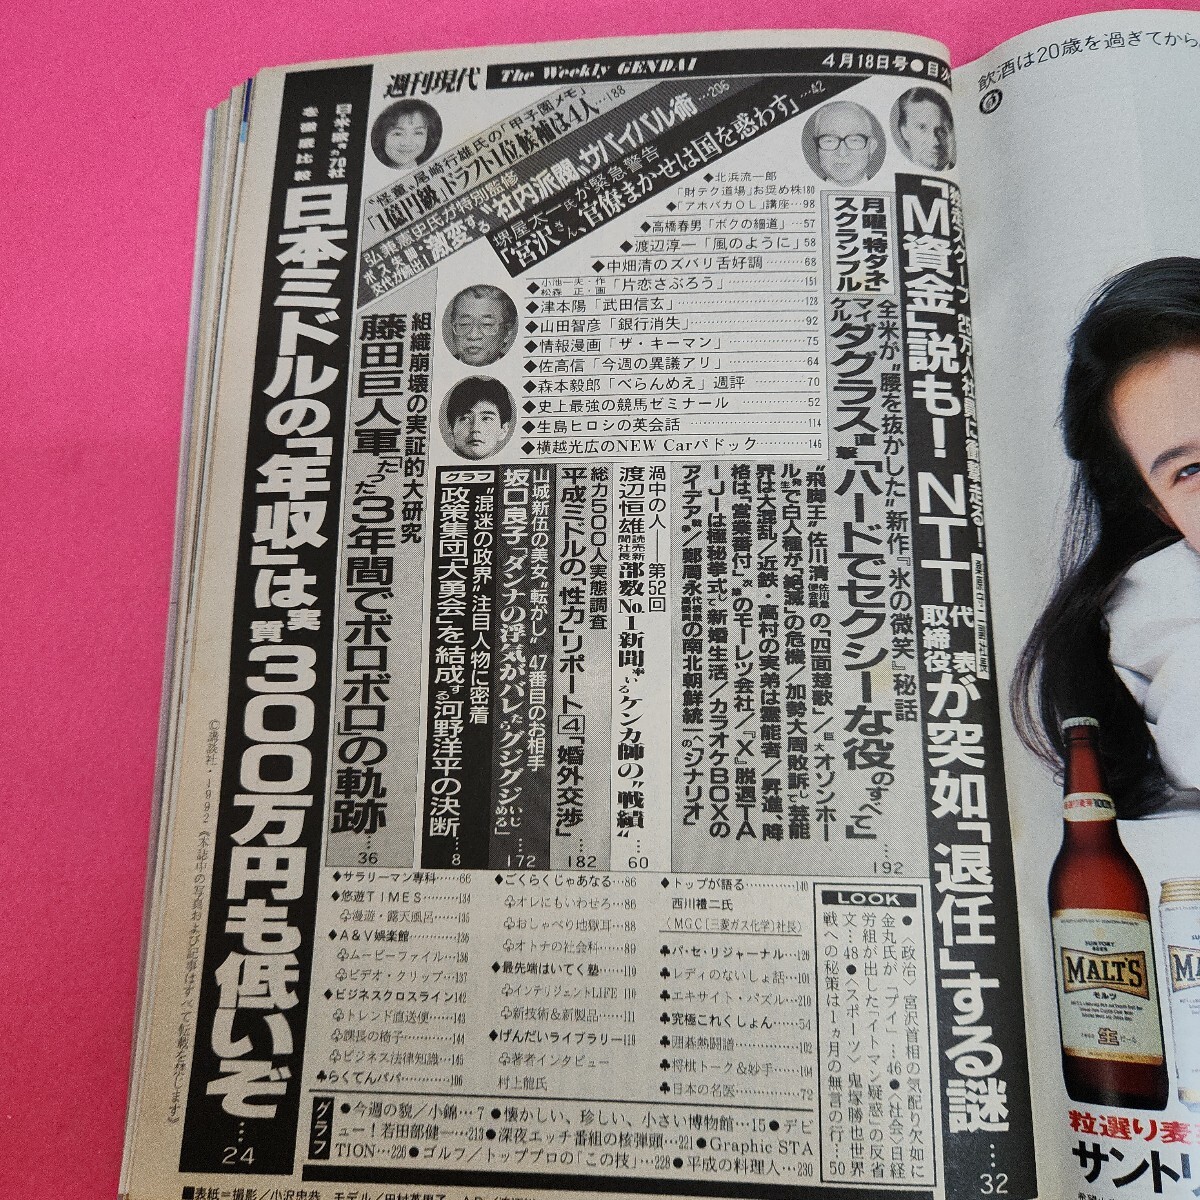 週刊現代
The Weekly GENDAI
4月18日号●目次
「M資金」説も!NTT代表取締役が突如「退任」する謎…32
月曜「特ダネ」スクランブル
全米が〝腰を抜かした〟新作『氷の微笑』秘話
マイケル ダグラス直撃「ハードでセクシーな役のすべて」…192
〝飛脚王〟佐川清佐川急便会長の「四面楚歌」/巨大オゾンホー
ルで白人種が「絶滅」の危機/加勢大周敗訴で芸能
界は大混乱/近鉄・高村の実弟は霊能者/昇進、降
格は「営業番付」のモーレツ会社/『X』脱退TA
IJIは極秘挙式で新婚生活/カラオケBOXの
アイデア/鄭周永の南北朝鮮統一の「シナリオ」
堺屋太一氏が緊急警告
「宮沢さん、官僚まかせは国を惑わす」…42
弘兼憲史氏が特別監修
激変する〝社内派閥〟サバイバル術…206
〝怪童〟尾崎行雄氏の「甲子園メモ」
「1億円級」ドラフト1位候補は4人…188
◆北浜流一郎
「財テク道場」お奨め株180
◆「アホバカOL」講座…98
◆高橋春男「ボクの細道」…57
◆渡辺淳一「風のように」58
◆中畑清のズバリ舌好調…68
◆小池一夫・作 松森正・画「片恋さぶろう」…151
◆津本陽「武田信玄」…128
◆山田智彦「銀行消失」…92
◆情報漫画「ザ・キーマン」…75
◆佐高信「今週の異議アリ」…64
◆森本毅郎「べらんめえ」週評…70
◆史上最強の競馬ゼミナール…52
◆生島ヒロシの英会話…114
◆横越光広のNEW Carパドック…146
渦中の人――第52回
渡辺恒雄読売新聞社長 部数No.1新聞率いるケンカ師の〝戦績〟…60
総力500人実態調査
平成ミドルの「性力」リポート 4 「婚外交渉」…182
山城新伍の美女〝転がし〟47番目のお相手
坂口良子「ダンナの浮気がバレたらグジグジいじめる」…172
グラフ
〝混迷の政界〟注目人物に密着
政策集団「大勇会」を結成する河野洋平の決断…8
組織崩壊の実証的大研究
藤田巨人軍「たった3年間でボロボロ」の軌跡…36
日本ミドルの「年収」は実質300万円も低いぞ…24
LOOK
●〈政治〉宮沢首相の気配り欠如に
金丸氏が「プイ」…46●〈社会〉日経
労組が出した「イトマン疑惑」の反省
文…48●〈スポーツ〉鬼塚勝也世界
戦への秘策は1ヵ月の無言の行…50
◆トップが語る…140
西川禮二氏
(MGC[三菱ガス化学]社長)
♣パ・セ・リジャーナル…126
♣レディのないしょ話…101
♣エキサイト・パズル…210
♣究極これくしょん…54
♣囲碁熱闘譜…102
♣将棋トーク&妙手…104
♣日本の名医…72
◆ごくらくじゃあなる…86
♧オレにもいわせろ…86
♧おしゃべり地獄耳…88
♧オトナの社会科…89
◆最先端はいてく塾…110
♧インテリジェントLIFE 110
♧新技術&新製品…111
◆げんだいライブラリー…118
♧著者インタビュー
村上龍氏
◆サラリーマン専科…66
◆悠遊TIMES…134
♧漫遊・露天風呂…135
◆A&V娯楽館…136
♧ムービーファイル…136
♧ビデオ・クリップ…137
◆ビジネスクロスライン142
♧トレンド直送便…143
♧課長の椅子…144
♧ビジネス法律知識…145
♣らくてんパパ…106
グラフ
●今週の貌/小錦…7●懐かしい、珍しい、小さい博物館…15●デビ
ュー!若田部健一…213●深夜エッチ番組の核弾頭…221●Graphic STA
TION…226●ゴルフ/トッププロの「この技」…228●平成の料理人…230
©講談社・1992《本誌中の写真および記事はすべて転載を禁じます》
飲酒は20歳を過ぎてから
SUNTORY
MALT'S
モルツ
生
粒選り麦
サントリ